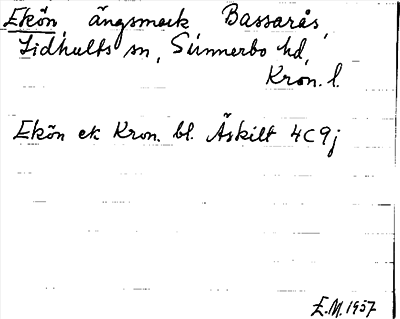 Ekön, ängsmark Bassarås,
Lidhults sn, Sunnerbo hd,
Kron. l.
Ekön ek Kron. bl. Äskilt 4C9j
E.M. 1957